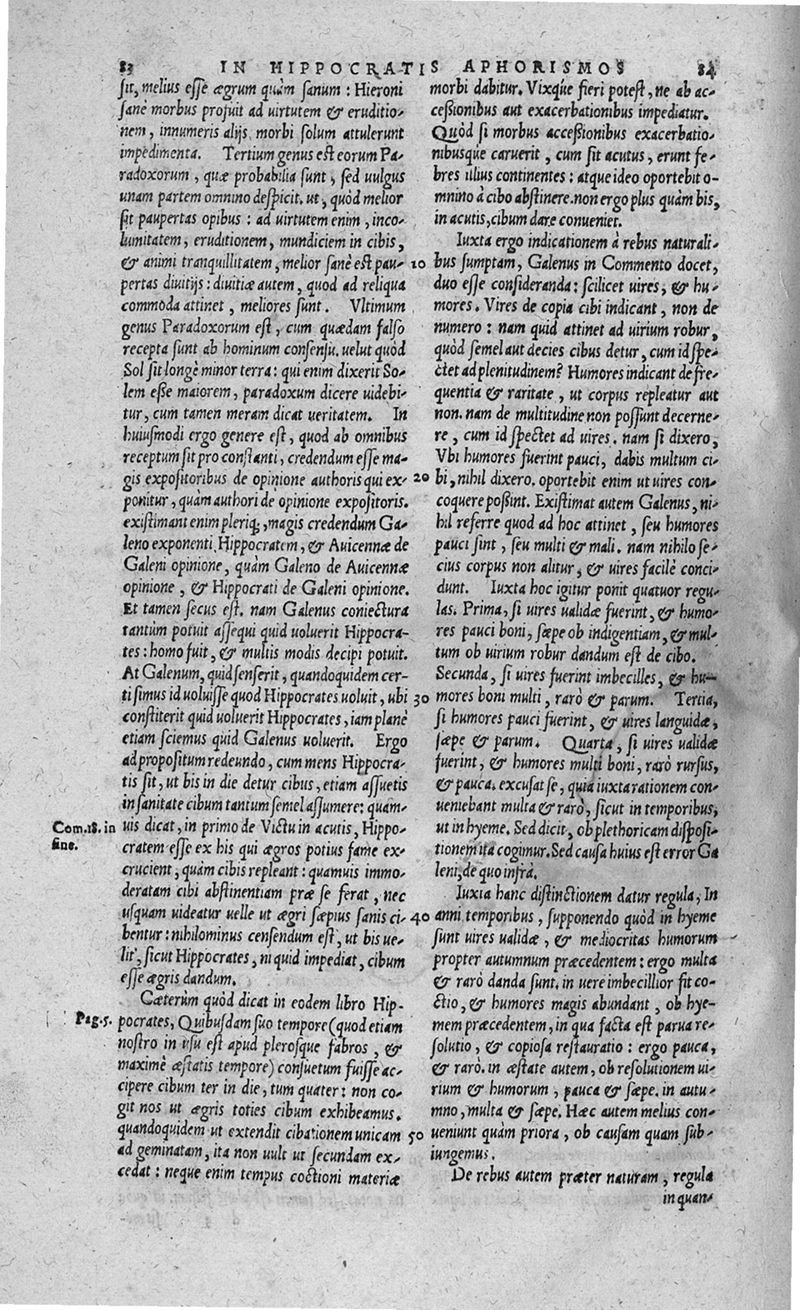 83 IN HIPPOCRATIS APHORISMOS 84
sit, melius esse ægrum quàm sanum: Hieroni
sanè morbus profuit ad uirtutem & eruditio-
nem, innumeris alijs morbi solum attulerunt
impedimenta. Tertium genus est eorum Pa-
radoxorum, quæ probabilia sunt, sed uulgus
unam partem omnino despicit. ut, quòd melior
sit paupertas opibus: ad uirtutem enim, inco-
lumitatem, eruditionem, mundiciem in cibis,
& animi tranquillitatem, melior sanè est pau-
pertas diuitijs: diuitiæ autem, quod ad reliqua
commoda attinet, meliores sunt. Vltimum
genus Paradoxorum est, cum quædam falso
recepta sunt ab hominum consensu. uelut quòd
Sol sit longè minor terra: qui enim dixerit So-
lem esse maiorem, paradoxum dicere uidebi-
tur, cum tamen meram dicat ueritatem. In
huiusmodi ergo genere est, quod ab omnibus
receptum sit pro constanti, credendum esse ma-
gis expositoribus de opinione authoris qui ex-
ponitur, quàm authori de opinione expositoris.
existimant enim pleriq;, magis credendum Ga-
leno exponenti Hippocratem, & Auicennæ de
Galeni opinione, quàm Galeno de Auicennæ
opinione, & Hippocrati de Galeni opinione.
Et tamen secus est. nam Galenus coniectura
tantùm potuit assequi quid uoluerit Hippocra-
tes: homo fuit, & multis modis decipi potuit.
At Galenum, quid senserit, quandoquidem cer-
tissimus id uoluisse quod Hippocrates uoluit, ubi
constiterit quid uoluerit Hippocrates, iam planè
etiam sciemus quid Galenus uoluerit. Ergo
ad propositum redeundo, cum mens Hippocra-
tis sit, ut bis in die detur cibus, etiam assuetis
in sanitate cibum tantum semel assumere: quam-
Com. 18. in fine.
uis dicat, in primo de Victu in acutis, Hippo-
cratem esse ex his qui ægros potius fame ex-
crucient, quàm cibis repleant: quamuis immo-
deratam cibi abstinentiam præ se ferat, nec
usquam uideatur uelle ut ægri sæpius sanis ci-
bentur: nihilominus censendum est, ut bis ue-
lit, sicut Hippocrates, ni quid impediat, cibum
esse ægris dandum.
Cæterùm quòd dicat in eodem libro Hip-
Pag. 5.
pocrates, Quibusdam suo tempore (quod etiam
nostro in usu est apud plerosque fabros, &
maximè æstatis tempore) consuetum fuisse ac-
cipere cibum ter in die, tum quater: non co-
git nos ut ægris toties cibum exhibeamus.
quandoquidem ut extendit cibationem unicam
ad geminatam, ita non uult ut secundam ex-
cedat: neque enim tempus coctioni materiæ
morbi dabitur. Vixque fieri potest, ne ab ac-
cessionibus aut exacerbationibus impediatur.
Quòd si morbus accessionibus exacerbatio-
nibusque caruerit, cum sit acutus, erunt fe-
bres illius continentes: atque ideo oportebit o-
mnino à cibo abstinere. non ergo plus quàm bis,
in acutis, cibum dare conueniet.
Iuxta ergo indicationem à rebus naturali-
10 bus sumptam, Galenus in Commento docet,
duo esse consideranda: scilicet uires, & hu-
mores. Vires de copia cibi indicant, non de
numero: nam quid attinet ad uirium robur,
quòd semel aut decies cibus detur, cum id spe-
ctet ad plenitudinem? Humores indicant de fre-
quentia & raritate, ut corpus repleatur aut
non. nam de multitudine non possunt decerne-
re, cum id spectet ad uires. nam si dixero,
Vbi humores fuerint pauci, dabis multum ci-
20 bi, nihil dixero. oportebit enim ut uires con-
coquere possint. Existimat autem Galenus, ni-
hil referre quod ad hoc attinet, seu humores
pauci sint, seu multi & mali. nam nihilo se-
cius corpus non alitur, & uires facilè conci-
dunt. Iuxta hoc igitur ponit quatuor regu-
las. Prima, si uires ualidæ fuerint, & humo-
res pauci boni, sæpe ob indigentiam, & mul-
tum ob uirium robur dandum est de cibo.
Secunda, si uires fuerint imbecilles, & hu-
30 mores boni multi, rarò & parum. Tertia,
si humores pauci fuerint, & uires languidæ,
sæpe & parum. Quarta, si uires ualidæ
fuerint, & humores multi boni, rarò rursus,
& pauca. excusat se, quia iuxta rationem con-
ueniebant multa & rarò, sicut in temporibus,
ut in hyeme. Sed dicit, ob plethoricam disposi-
tionem ita cogimur. Sed causa huius est error Ga
leni, de quo infrà.
Iuxta hanc distinctionem datur regula, In
40 anni temporibus, supponendo quòd in hyeme
sunt uires ualidæ, & mediocritas humorum
propter autumnum præcedentem: ergo multa
& rarò danda sunt. in uere imbecillior fit co-
ctio, & humores magis abundant, ob hye-
mem præcedentem, in qua facta est parua re-
solutio, & copiosa restauratio: ergo pauca,
& rarò. in æstate autem, ob resolutionem ui-
rium & humorum, pauca & sæpe. in autu-
mno, multa & sæpe. Hæc autem melius con-
50 ueniunt quàm priora, ob causam quam sub-
iungemus.
De rebus autem præter naturam, regula
in quan-